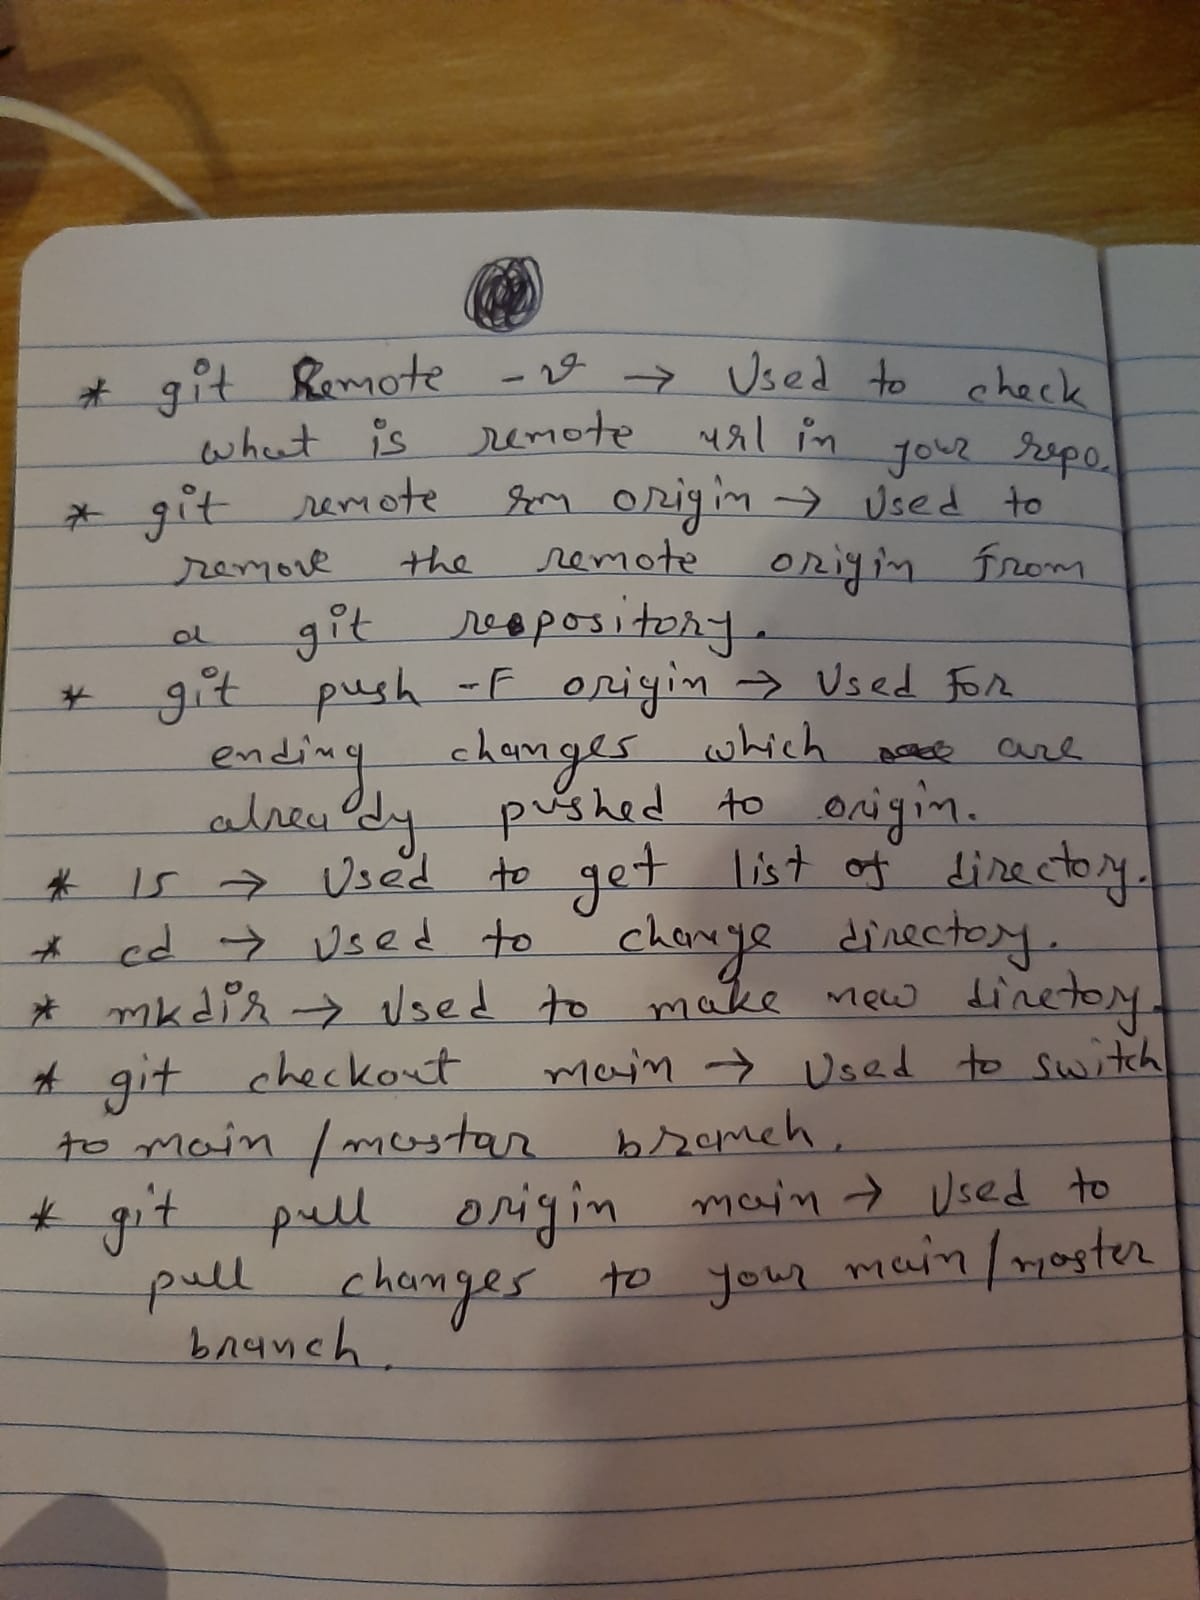 * git Remote -v → Used to check
what is remote url in your repo.
* git remote rm origin → Used to
remove the remote origin from
a git respository.
* git push -F origin → Used for
ending changes which are
already pushed to origin.
* ls → Used to get list of directory.
* cd → Used to change directory.
* mkdir → Used to make new diretory.
* git checkout main → Used to switch
to main / mastar branch.
* git pull origin main → Used to
pull changes to your main / master
branch.